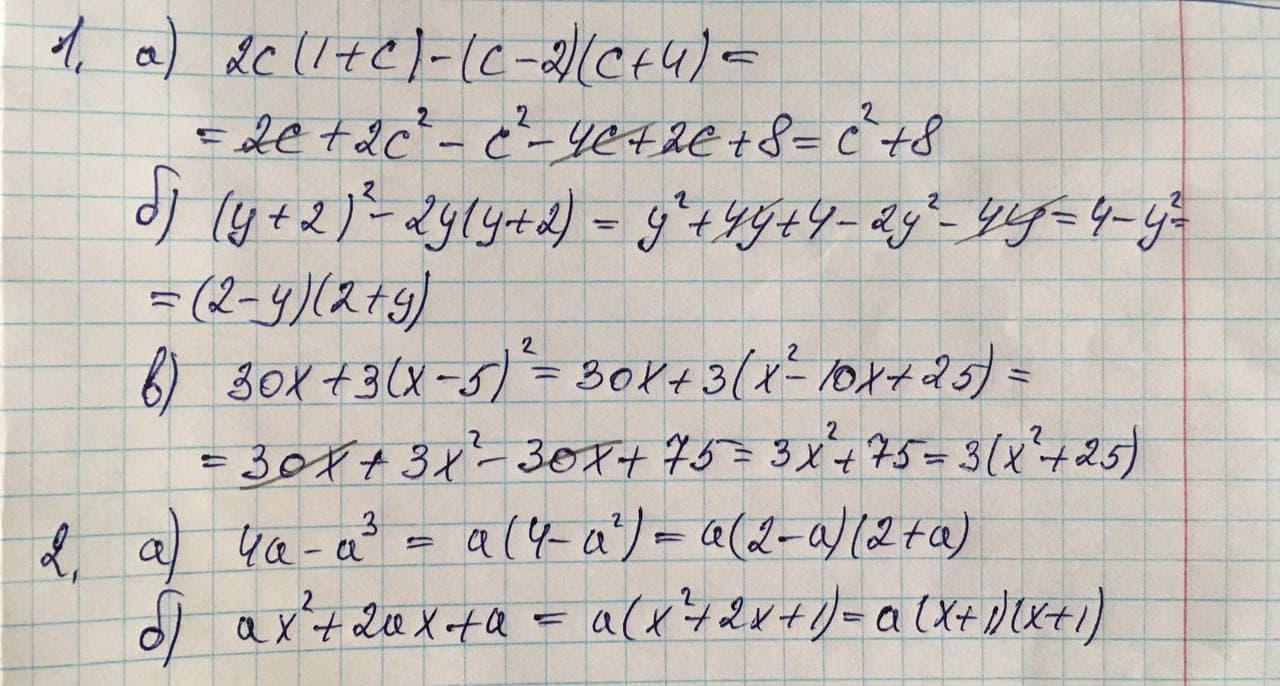 1. а) 2c(1+c)-(c-2)(c+4)=
=2c+2c²-c²-4c+2c+8=c²+8
б) (y+2)²-2y(y+2)=y²+4y+4-2y²-4y=4-y²=
=(2-y)(2+y)
в) 30x+3(x-5)²=30x+3(x²-10x+25)=
=30x+3x²-30x+75=3x²+75=3(x²+25)
2. а) 4a-a³=a(4-a²)=a(2-a)(2+a)
б) ax²+2ax+a=a(x²+2x+1)=a(x+1)(x+1)